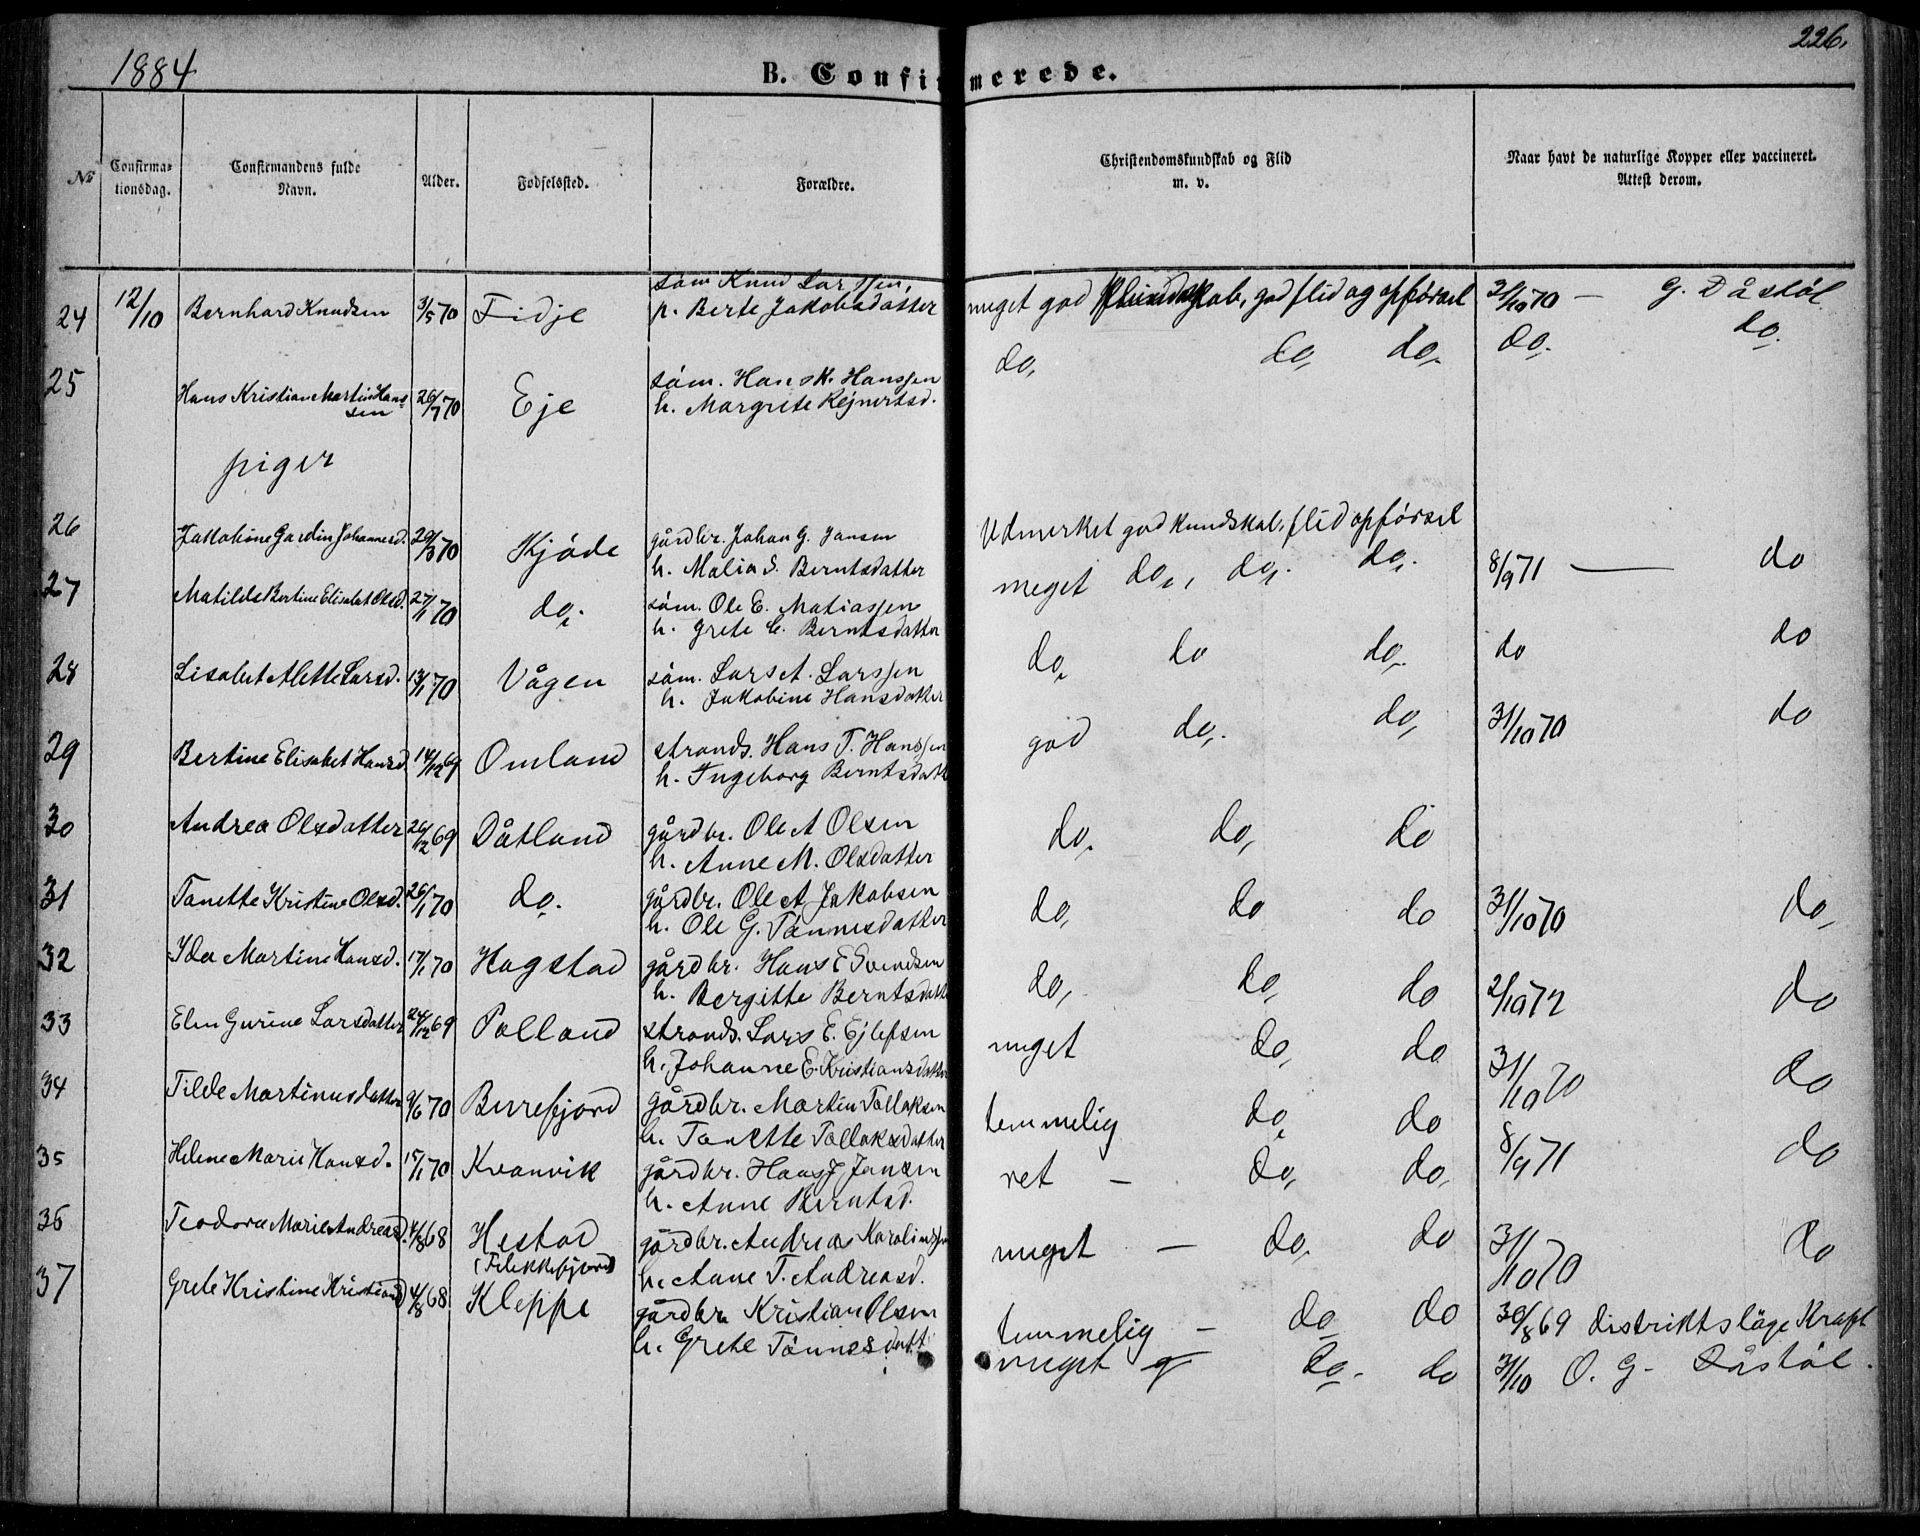 1884
B. Confirmerede.
226.
No
Confirma-
tionsdag.
Confirmandens fulde
Navn.
Alder.
Fødselssted.
Forældre.
Christendomskundskab og Flid
m. v.
Naar havt de naturlige Kopper eller vaccineret.
Attest derom.
24 12/10 Bernhard Knudsen 3/5 70 Fidje søm. Knud Larssen,
h. Berte Jakobsdatter meget god kundskab, god flid og opførsel 31/10 70 — G. Dåstøl
25 Hans Kristian Martin Hans-
sen 26/7 70 Eje søm. Hans K. Hanssen
h. Margrete Rejnertsd. do, do, do. do. do.
piger
26 Jakobine Gardin Johannesd. 29/3 70 Kjøde gårdbr. Johan G. Jansen
h. Malia S. Berntsdatter Udmerket god kundskab, flid opførsel 8/9 71 — do
27 Matilde Bertine Elisabet Olsd. 27/1 70 do. søm. Ole E. Matiassen
h. Grete C. Berntsdatter meget do, do. do. do do
28 Lisabet Alette Larsd. 13/1 70 Vågen søm. Lars A. Larssen
h. Jakobine Hansdatter do, do do. 31/10 70 do
29 Bertine Elisabet Hansd 14/12 69 Omland strands. Hans T. Hanssen
h. Ingeborg Berntsdatt god do. do,
30 Andrea Olsdatter 26/12 69 Dåtland gårdbr. Ole A Olsen
h. Anne M. Olsdatter do. do, do
31 Tanette Kristine Olsd. 26/1 70 do. gårdbr. Ole A. Jakobsen
h. Ole G. Tønnesdatter do, do do 31/10 70 do,
32 Ida Martine Hansd. 17/1 70 Hagstad gårdbr. Hans E Svendsen
h. Bergitte Berntsdatt do, do, do 2/10 72 do
33 Elen Gurine Larsdatter 24/12 69 Polland strands. Lars E. Ejlefsen
h. Johanne E. Kristiansdatter meget do, do 31/10 70 do
34 Tilde Martinusdatter 9/6 70 Berrefjord gårdbr. Martin Tollaksen
h. Tanette Tollaksdatter temmelig do, do 8/9 71 do
35 Helene Marie Hansd. 15/1 70 Kvanvik gårdbr. Hans J Jansen
h. Anne Berntsd. ret — do, do,
36 Teodora Marie Andreasd. 4/8 68 Hestad
(Flekkefjord) gårdbr. Andreas Karolinssen
h. Anne T. Andreasd. meget — do, do 31/10 70 do
37 Grete Kristine Kristiansd 4/8 68 Kleppe gårdbr Kristian Olsen
h. Grete Tønnesdatt temmelig — do do 30/8 69 distriktslæge Kraft
meget g do. do 31/10 O. G. Dåstøl.